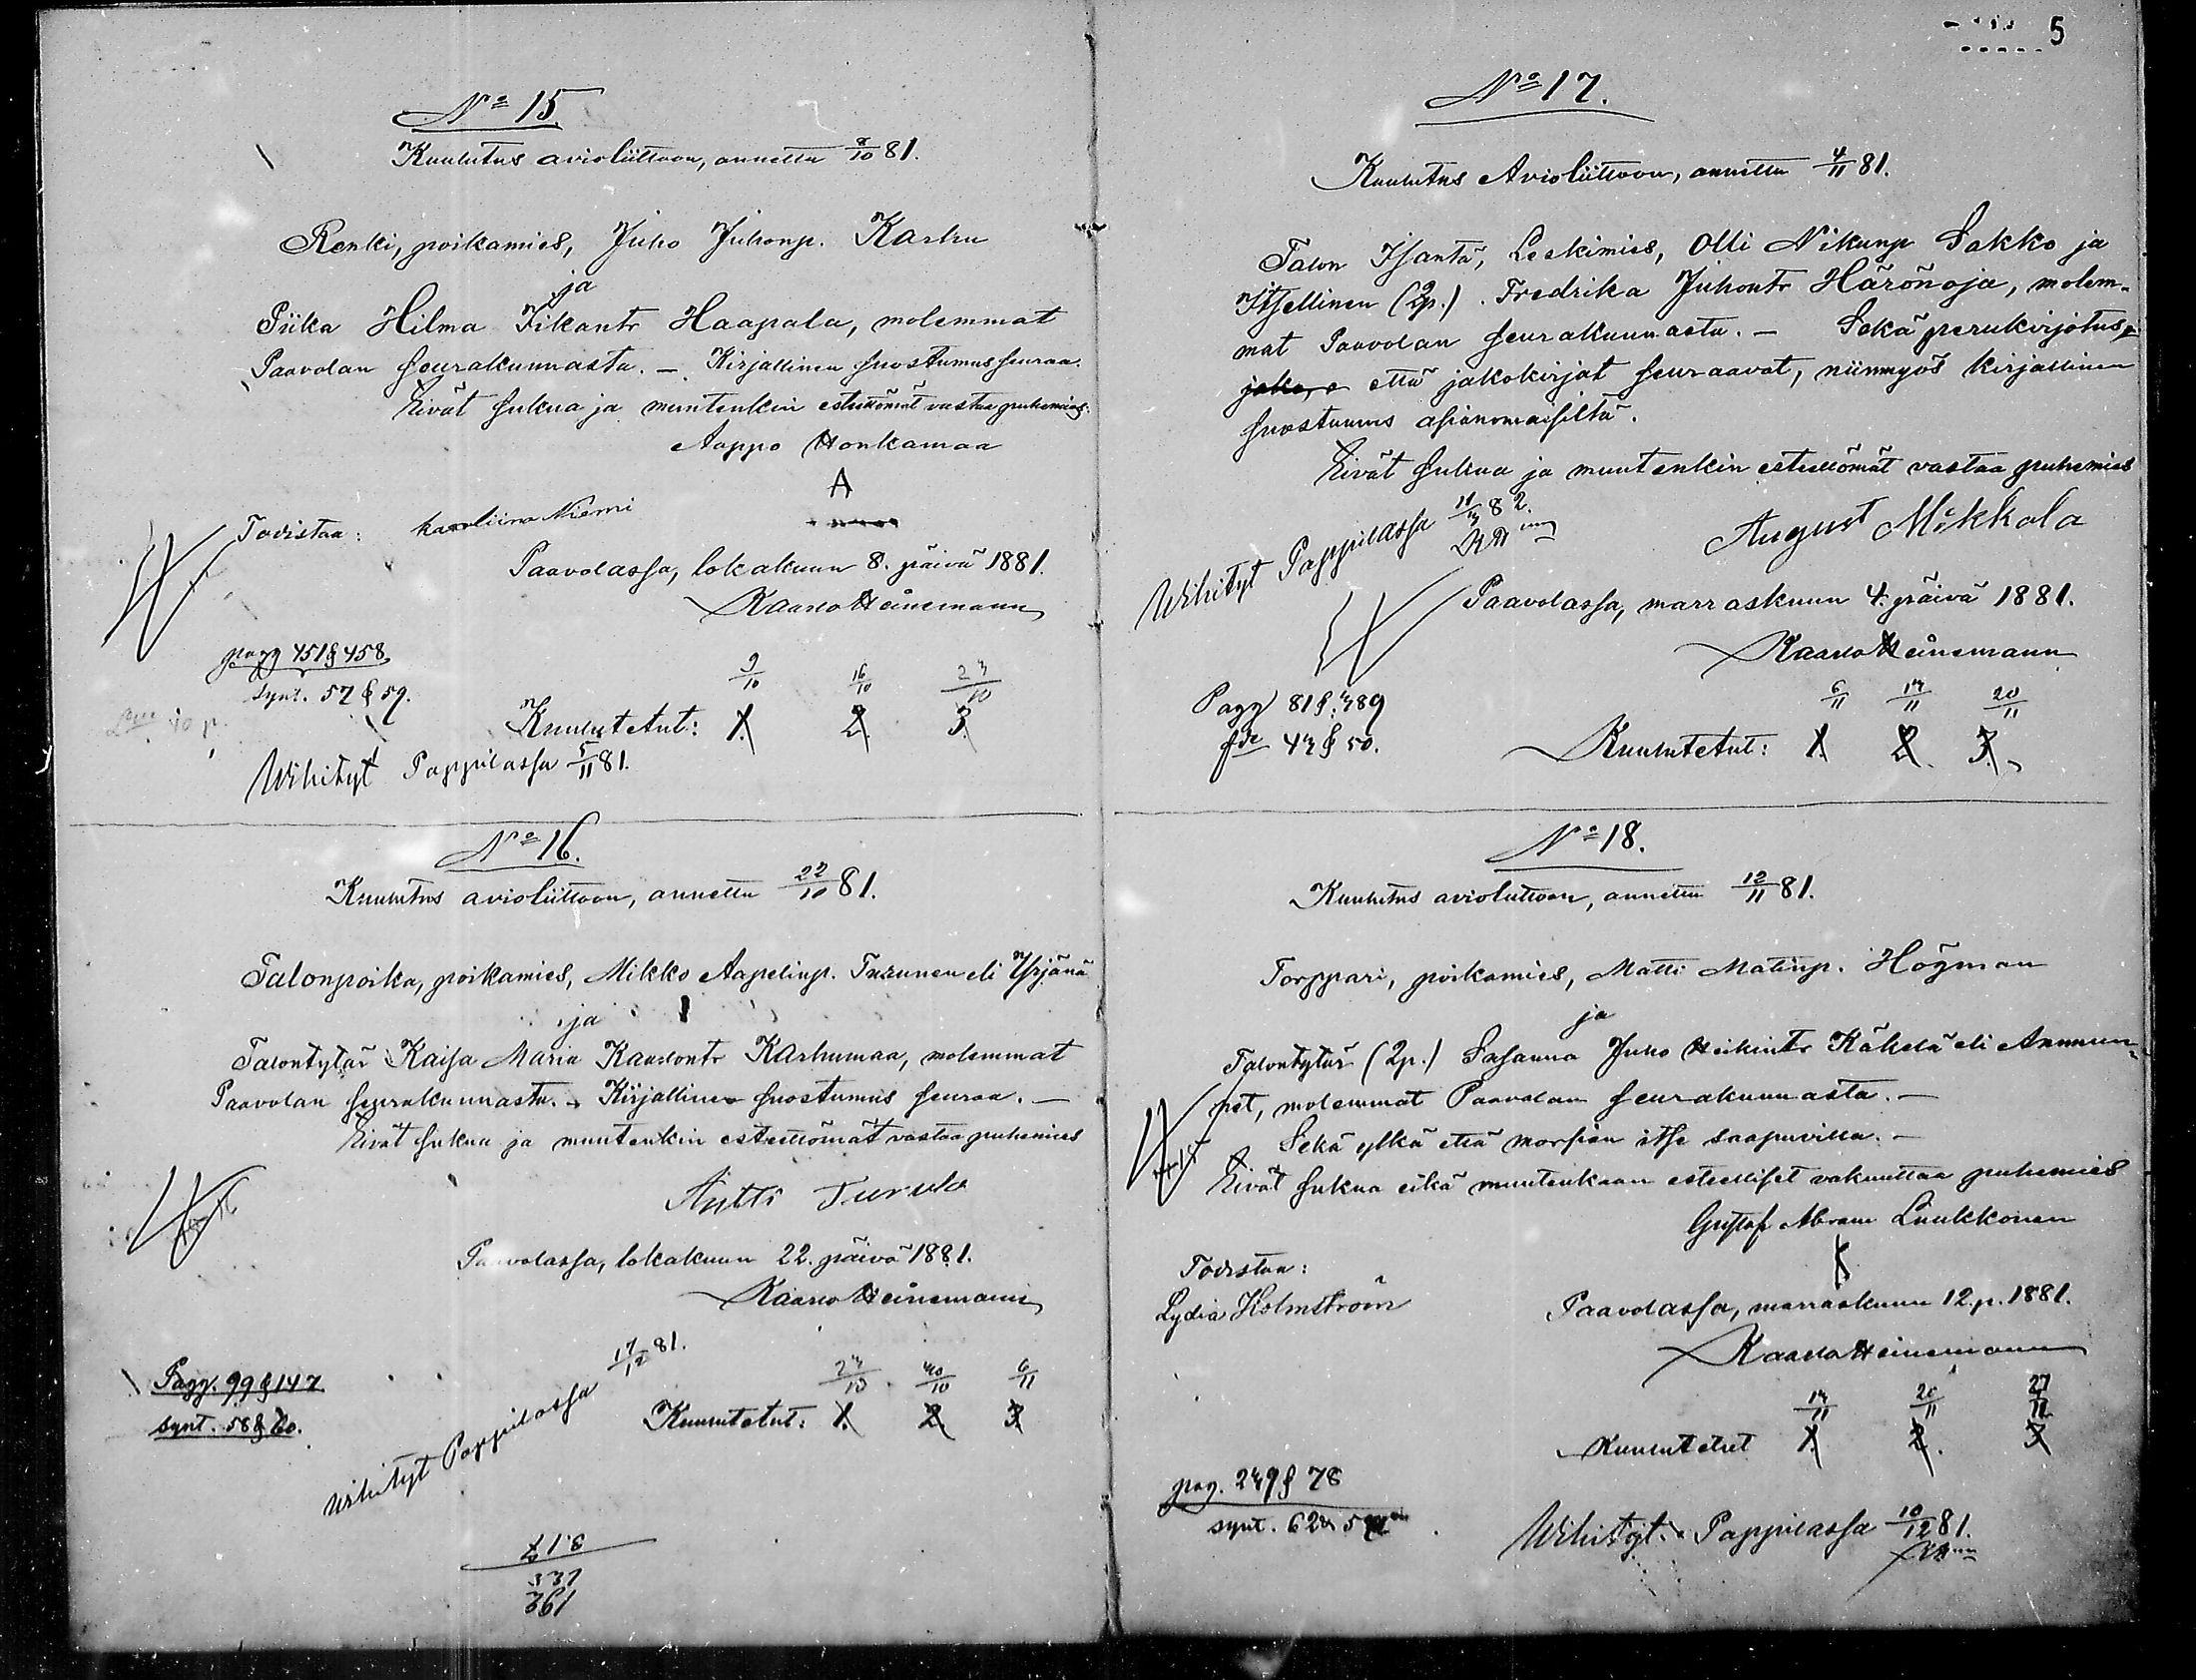 No 15.
Kuulutus avioliittoon, annettu 8/10 81.
Renki, poikamies, Juho Juhonp. Karhu
ja
Piika Hilma Iikantr Haapala, molemmat
Paavolan seurakunnasta. – Kirjallinen suostumus seuraa.
Eivät sukua ja muutenkin esteettömät vastaa puhemies:
Aappo Honkamaa
A
Todistaa: Karoliina Niemi
Paavolassa, lokakuun 8. päivä 1881.
Kaarlo Heinemann
pagg 451 & 458
synt. 57 & 59.
9/10 16/10 23/10
Kuulutetut: 1. 2. 3.
Wihityt Pappilassa 5/11 81.
No 16.
Kuulutus avioliittoon, annettu 22/10 81.
Talonpoika, poikamies, Mikko Aapelinp. Turunen eli Yrjänä
ja
Talontytär Kaisa Maria Kaarlontr Karhumaa, molemmat
Paavolan seurakunnasta. – Kirjallinen suostumus seuraa. –
Eivät sukua ja muutenkin esteettömät vastaa puhemies
Antti Turula
Paavolassa, lokakuun 22. päivä 1881.
Kaarlo Heinemann
Pagg. 99 & 147.
synt. 58 & 60.
Wihityt Pappilassa 17/12 81.
23/10 30/10 6/11
Kuulutetut: 1. 2. 3.
337
361
5
No 17.
Kuulutus Avioliittoon, annettu 4/11 81.
Talon Isäntä, Leskimies, Olli Nikunp Sakko ja
Itsellinen (2p.). Fredrika Juhontr Härönoja, molem-
mat Paavolan seurakunnasta. – Sekä perukirjotus,
että jakokirjat seuraavat, niinmyös kirjallinen
suostumus asianomaisilta.
Eivät sukua ja muutenkin esteettömät vastaa puhemies
August Mikkola
Wihityt Pappilassa 82.
Paavolassa, marraskuun 4. päivä 1881.
Kaarlo Heinemann
Pagg 81 & 389
43 & 50.
6/11 13/11 20/11
Kuulutetut: 1. 2. 3.
No 18.
Kuulutus avioliittoon, annettu 12/11 81.
Torppari, poikamies, Matti Matinp. Högman
ja
Talontytär (2p.) Susanna Juho Heikintr Käkelä eli Annun-
net, molemmat Paavolan seurakunnasta. –
Sekä ylkä että morsian itse saapuvilla. –
Eivät sukua eikä muutenkaan esteelliset vakuuttaa puhemies
Gustaf Abram Luukkonen
Todistaa:
Lydia Holmström
Paavolassa, marraskuun 12. p. 1881.
Kaarlo Heinemann
13/11 20/11 27/11
Kuulutetut 1. 2. 3.
pag. 239 & 78
synt. 62
Wihityt Pappilassa 10/12 81.